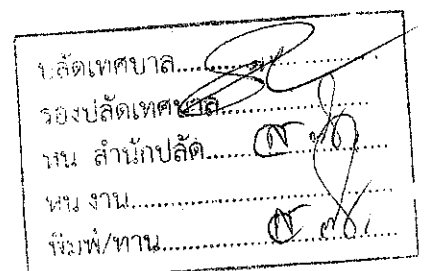 ปลัดเทศบาล..................
รองปลัดเทศบาล..................
หน สำนักปลัด..................
หน งาน..................
พิมพ์/ทาน..................